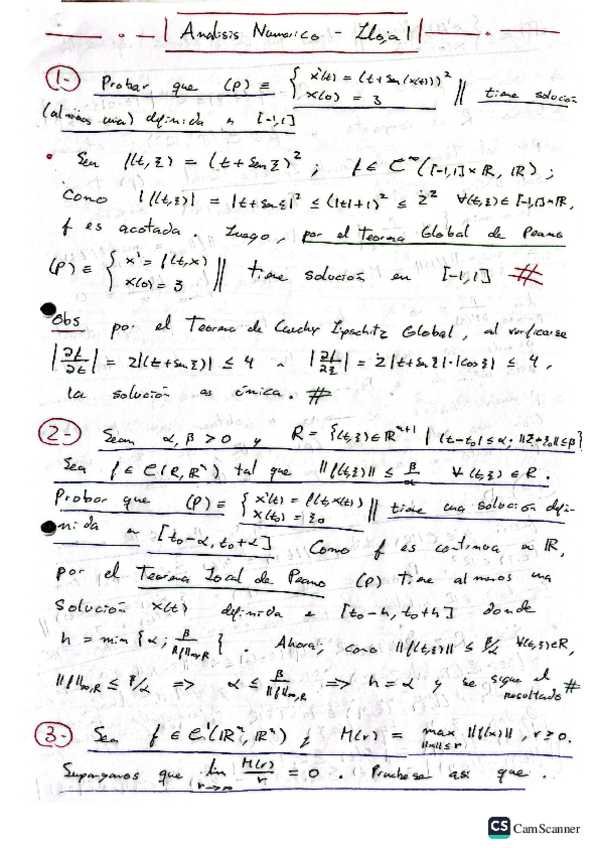 Analisis Numerico - Hoja 1
1- Probar que (P) ≡ { x'(t) = (t + sen(x(t)))² ; x(0) = 3 || tiene solución
(al menos una) definida en [-1,1]
• Sea f(t,ξ) = (t + sen ξ)² ; f ∈ C^∞([-1,1]×ℝ, ℝ) ;
Como |f(t,ξ)| = |t + sen ξ|² ≤ (|t|+1)² ≤ 2² ∀(t,ξ) ∈ [-1,1]×ℝ,
f es acotada. Luego, por el Teorema Global de Peano
(P) ≡ { x' = f(t,x) ; x(0) = 3 || tiene solución en [-1,1] #
Obs por el Teorema de Cauchy Lipschitz Global, al verificarse
|∂f/∂t| = 2|(t + sen ξ)| ≤ 4 ∧ |∂f/∂ξ| = 2|t + sen ξ|·|cos ξ| ≤ 4,
la solución es única. #
2- Sean α, β > 0 y R = {(t,ξ) ∈ ℝ^{n+1} | |t-t₀| ≤ α; ||ξ-ξ₀|| ≤ β}
Sea f ∈ C(R, ℝⁿ) tal que ||f(t,ξ)|| ≤ β/α ∀ (t,ξ) ∈ R.
Probar que (P) ≡ { x'(t) = f(t,x(t)) ; x(t₀) = ξ₀ || tiene una solución defi-
nida en [t₀-α, t₀+α] Como f es continua en R,
por el Teorema Local de Peano (P) tiene al menos una
solución x(t) definida e [t₀-h, t₀+h] donde
h = min {α; β/||f||∞,R}. Ahora, como ||f(t,ξ)|| ≤ β/α ∀(t,ξ) ∈ R,
||f||∞,R ≤ β/α => α ≤ β/||f||∞,R => h = α y se sigue el
resultado #
3- Sea f ∈ C¹(ℝⁿ, ℝⁿ) y M(r) = max_{||x||≤r} ||f(x)||, r ≥ 0.
Supongamos que lim_{r→∞} M(r)/r = 0. Pruébese así que.
CS CamScanner